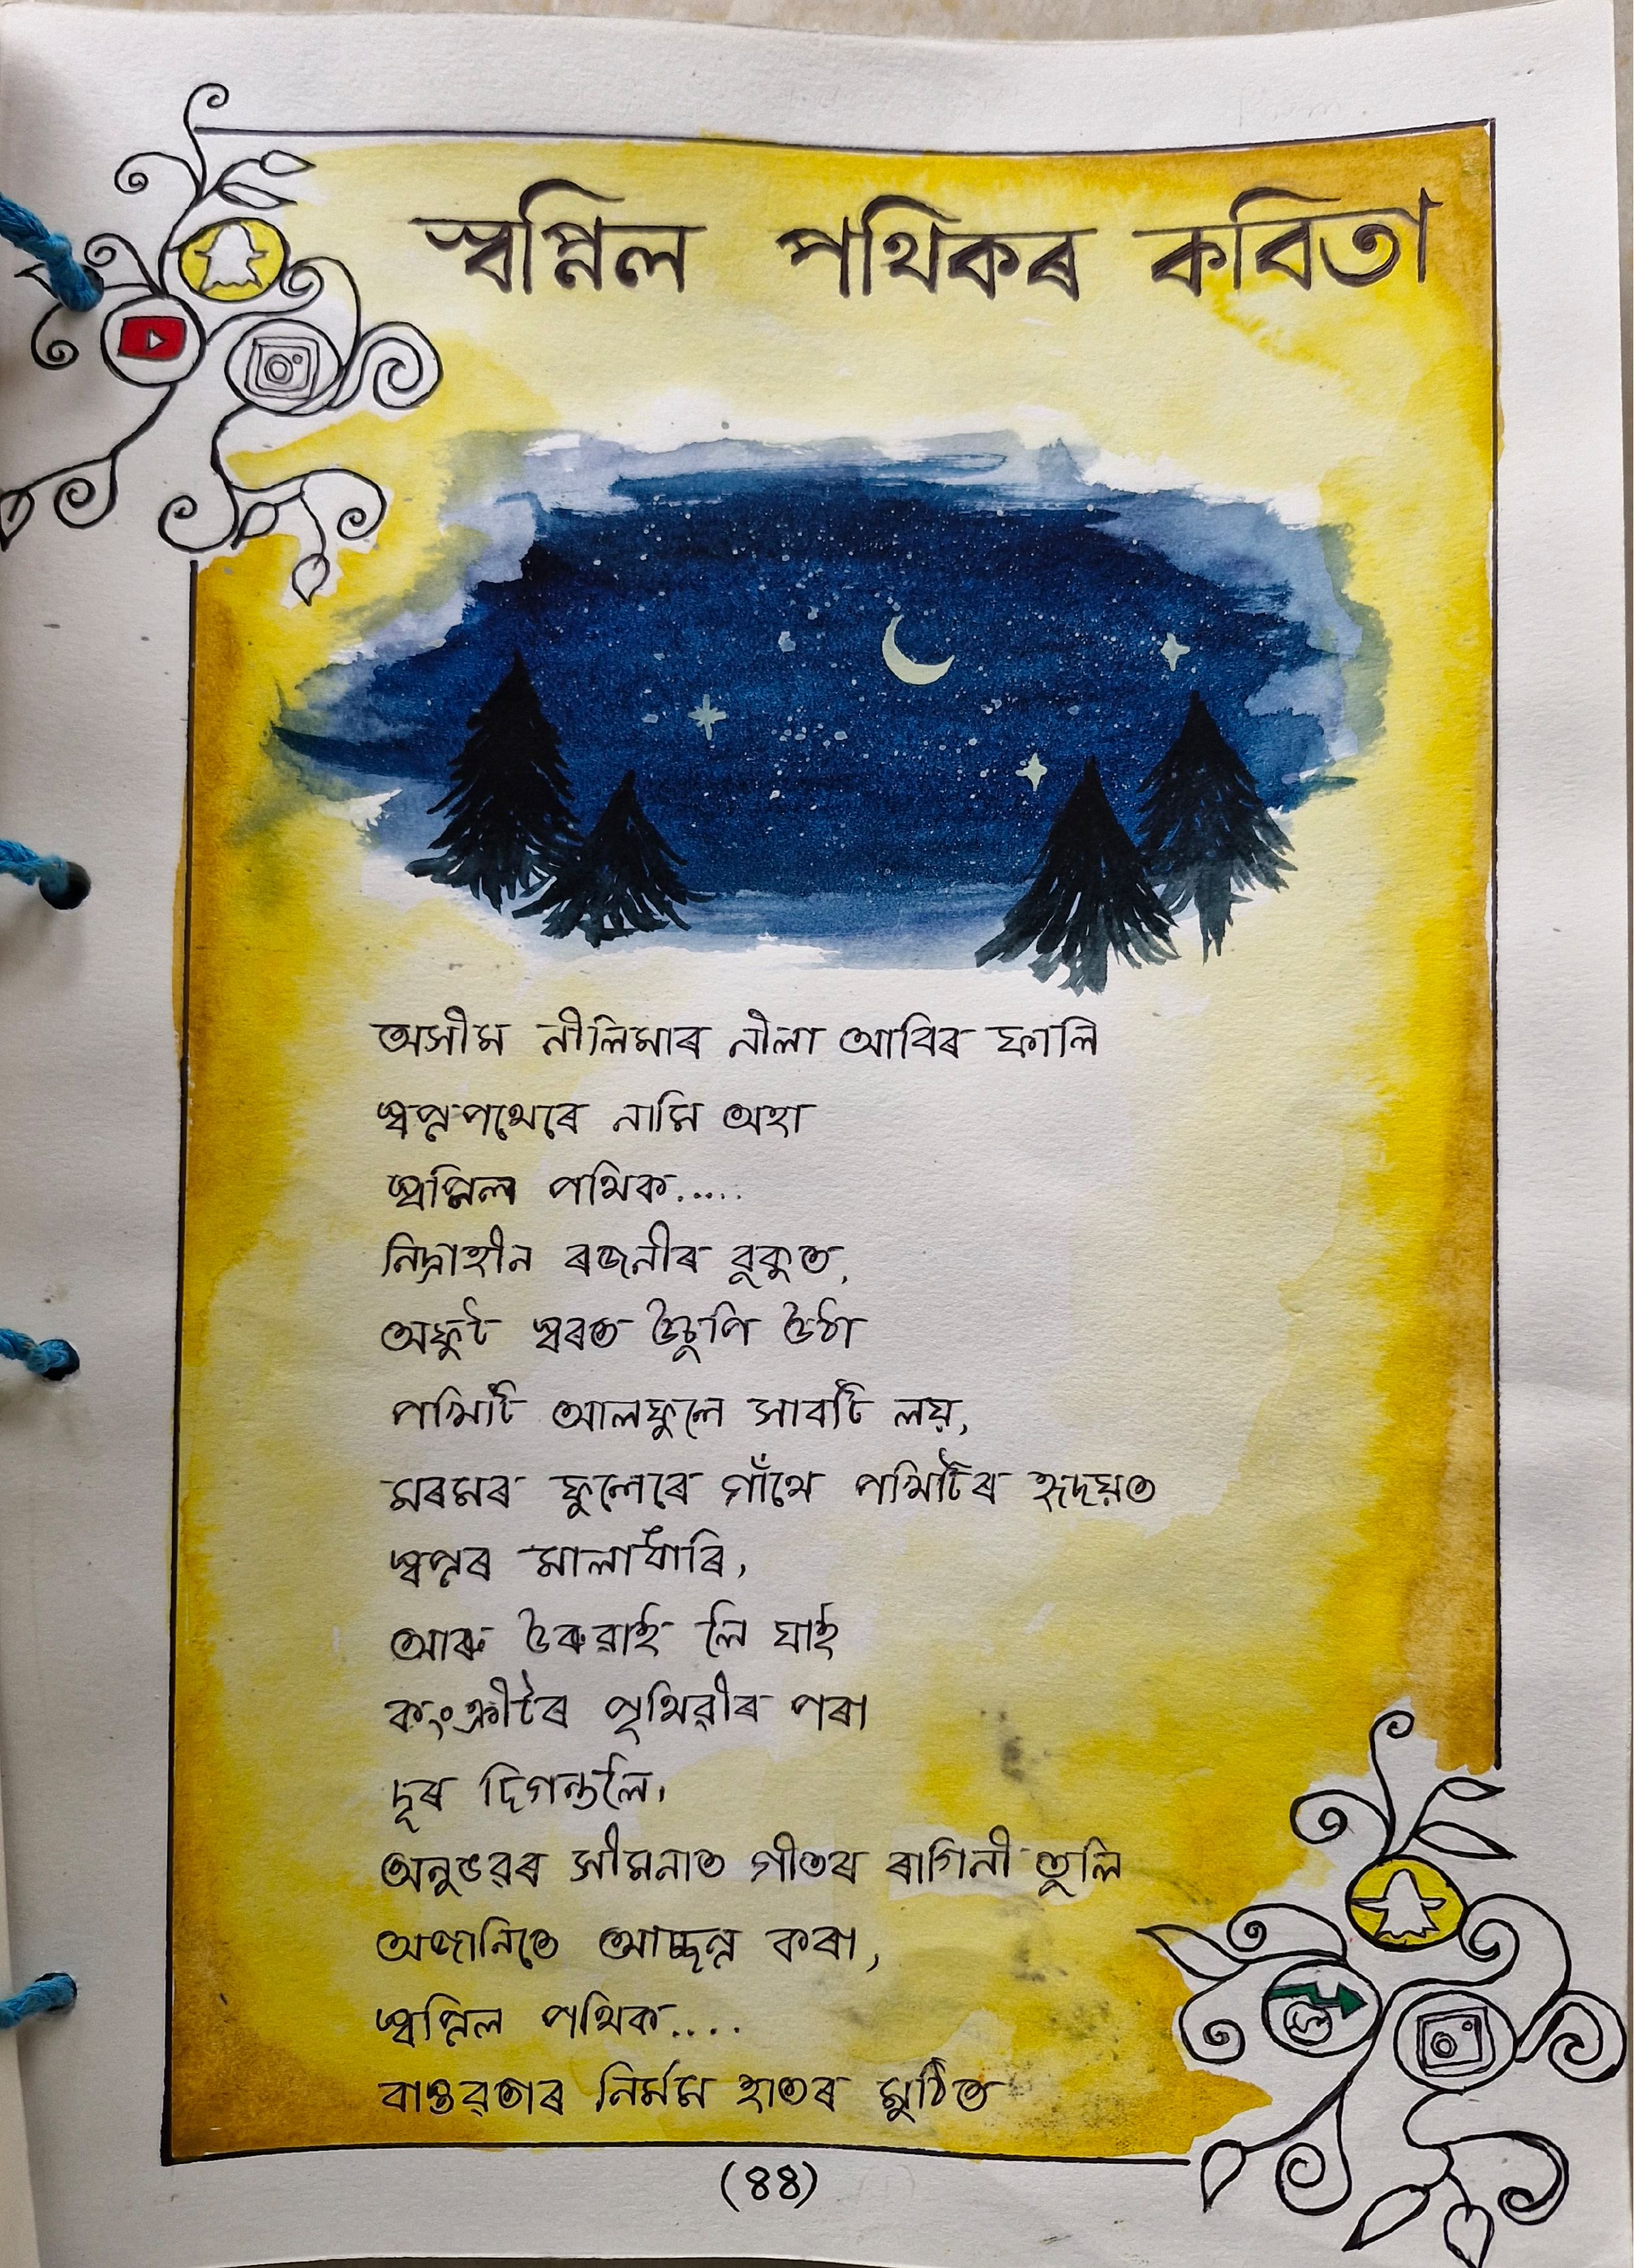 স্বপ্নিল পথিকৰ কবিতা
অসীম নীলিমাৰ নীলা আবিৰ ফালি
স্বপ্নপথেৰে নামি অহা
স্বপ্নিল পথিক.....
নিদ্ৰাহীন ৰজনীৰ বুকুত,
অফুট স্বৰত উচুপি উঠা
পখিটি আলফুলে সাবটি লয়,
মৰমৰ ফুলেৰে গাঁথে পখিটিৰ হৃদয়ত
স্বপ্নৰ মালাধাৰি,
আৰু উৰুৱাই লি যাই
কংক্ৰীটৰ পৃথিৱীৰ পৰা
দূৰ দিগন্তলৈ।
অনুভৱৰ সীমনাত গীতৰ ৰাগিনী তুলি
অজানিতে আচ্ছন্ন কৰা,
স্বপ্নিল পথিক....
বাস্তৱতাৰ নিৰ্মম হাতৰ মুঠিত
(৪৪)